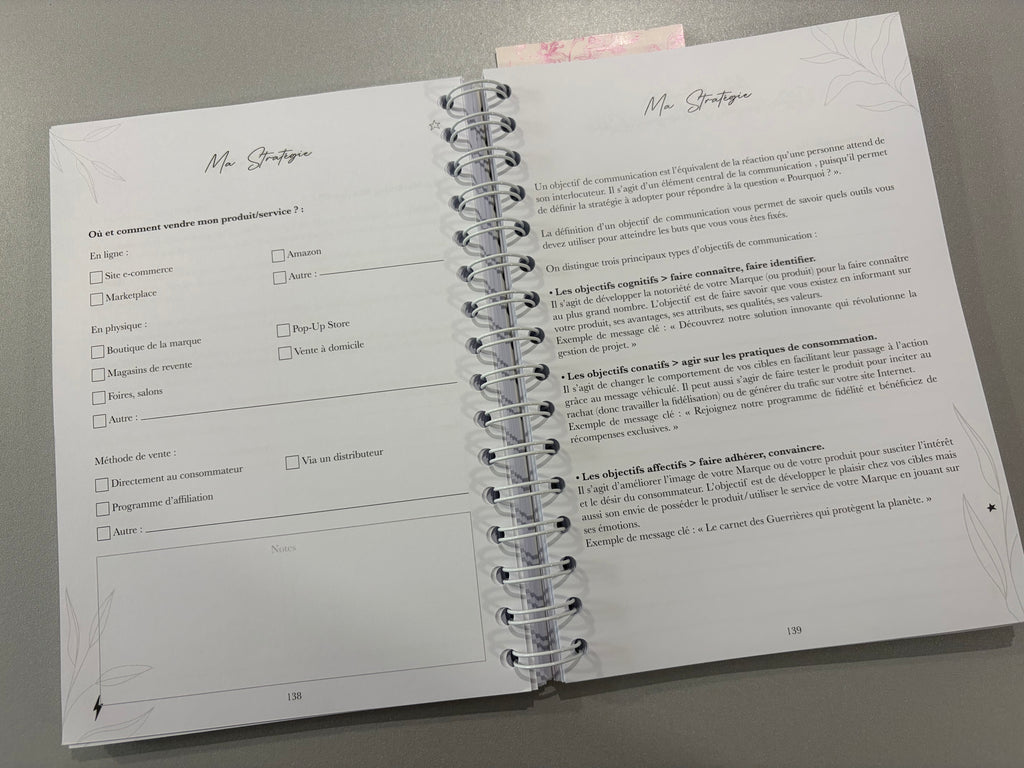 Ma Stratégie
Où et comment vendre mon produit/service ? :
En ligne :
Site e-commerce
Amazon
Marketplace
Autre :
En physique :
Boutique de la marque
Pop-Up Store
Magasins de revente
Vente à domicile
Foires, salons
Autre :
Méthode de vente :
Directement au consommateur
Via un distributeur
Programme d'affiliation
Autre :
Notes
138
Ma Stratégie
Un objectif de communication est l'équivalent de la réaction qu'une personne attend de
son interlocuteur. Il s'agit d'un élément central de la communication , puisqu'il permet
de définir la stratégie à adopter pour répondre à la question « Pourquoi ? ».
La définition d'un objectif de communication vous permet de savoir quels outils vous
devez utiliser pour atteindre les buts que vous vous êtes fixés.
On distingue trois principaux types d'objectifs de communication :
• Les objectifs cognitifs > faire connaître, faire identifier.
Il s'agit de développer la notoriété de votre Marque (ou produit) pour la faire connaître
au plus grand nombre. L'objectif est de faire savoir que vous existez en informant sur
votre produit, ses avantages, ses attributs, ses qualités, ses valeurs.
Exemple de message clé : « Découvrez notre solution innovante qui révolutionne la
gestion de projet. »
• Les objectifs conatifs > agir sur les pratiques de consommation.
Il s'agit de changer le comportement de vos cibles en facilitant leur passage à l'action
grâce au message véhiculé. Il peut aussi s'agir de faire tester le produit pour inciter au
rachat (donc travailler la fidélisation) ou de générer du trafic sur votre site Internet.
Exemple de message clé : « Rejoignez notre programme de fidélité et bénéficiez de
récompenses exclusives. »
• Les objectifs affectifs > faire adhérer, convaincre.
Il s'agit d'améliorer l'image de votre Marque ou de votre produit pour susciter l'intérêt
et le désir du consommateur. L'objectif est de développer le plaisir chez vos cibles mais
aussi son envie de posséder le produit/utiliser le service de votre Marque en jouant sur
ses émotions.
Exemple de message clé : « Le carnet des Guerrières qui protègent la planète. »
139